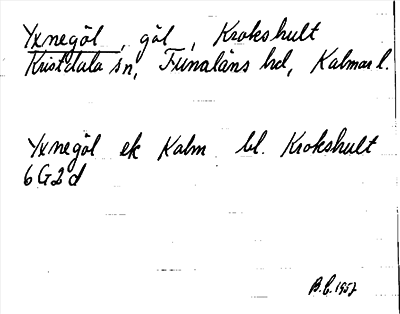 Yxnegöl, göl, Krokshult
Kristdala sn, Tunaläns hd, Kalmar l.
Yxnegöl ek Kalm bl. Krokshult
6G2d
B.C. 1957